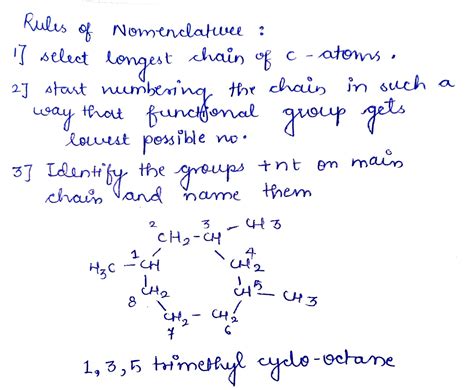 Rules of Nomenclature :
1] select longest chain of c - atoms .
2] start numbering the chain in such a
way that functional group gets
lowest possible no.
3] Identify the groups +nt on main
chain and name them
2 3
CH2 - CH - CH3
1 4
H3C - CH CH2
CH2 CH5 - CH3
8
CH2 - CH2
7 6
1, 3, 5 trimethyl cyclo-octane